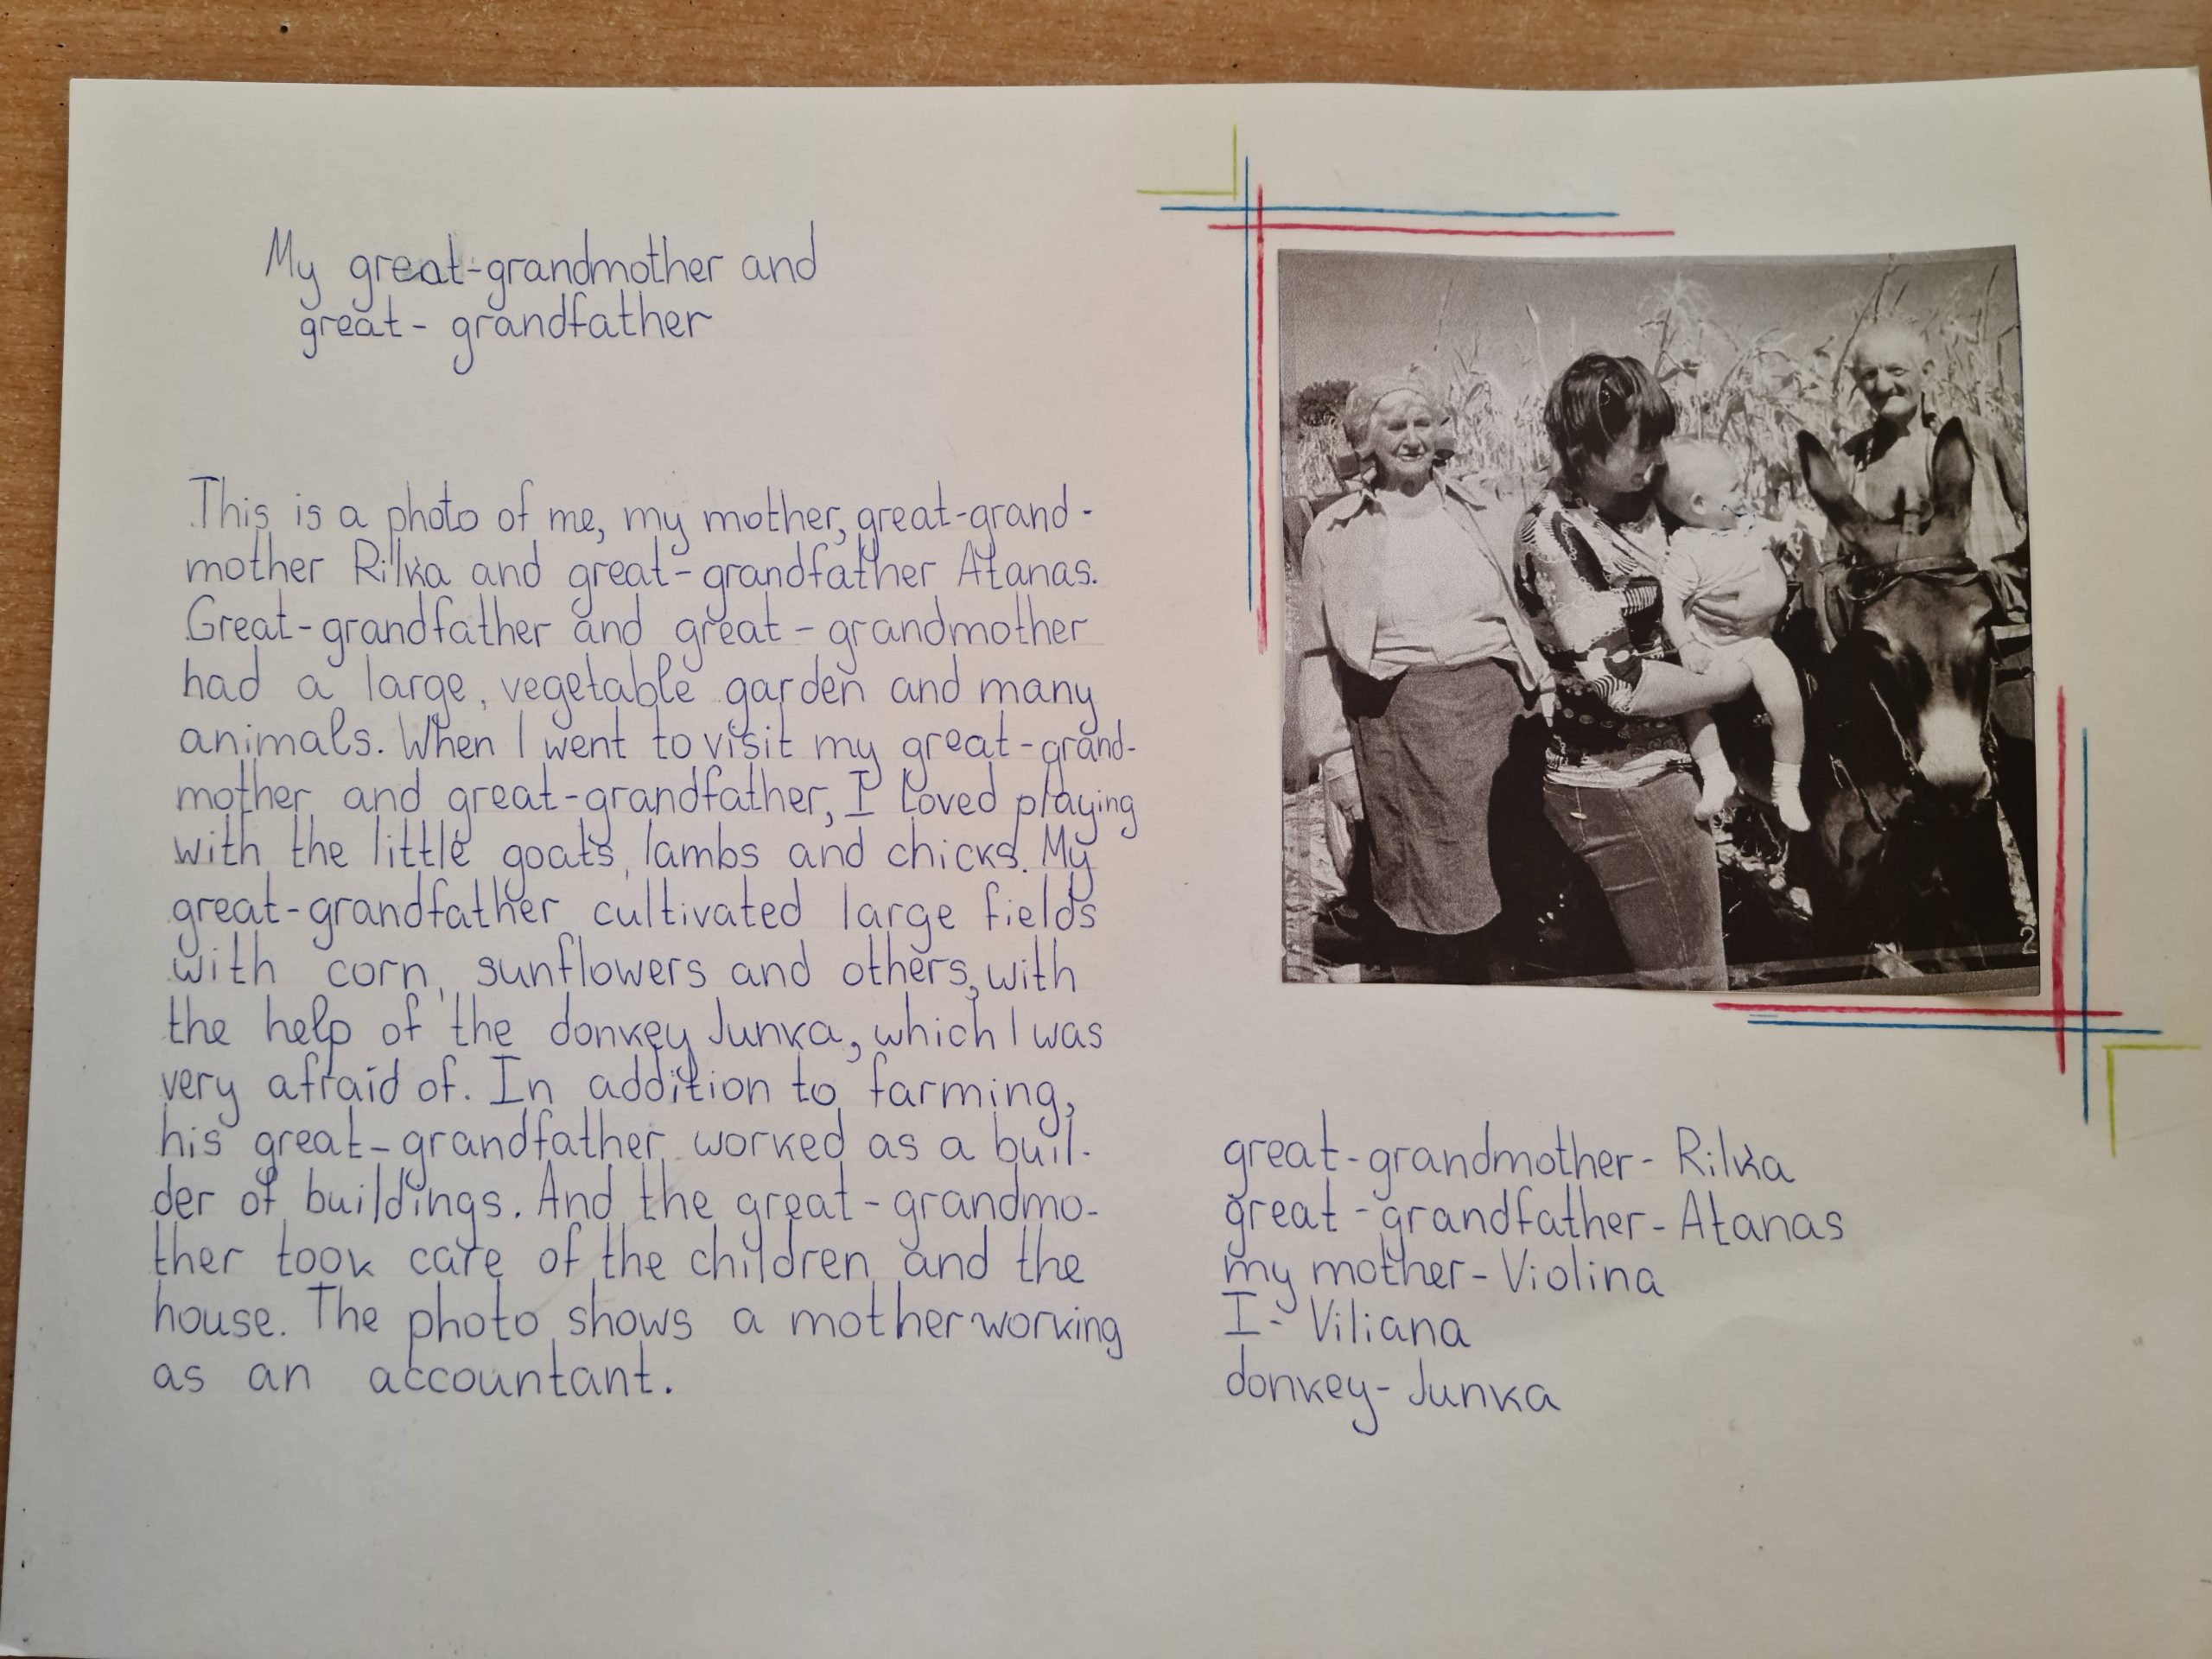 My great-grandmother and
great- grandfather
This is a photo of me, my mother, great-grand-
mother Rilka and great-grandfather Atanas.
Great-grandfather and great-grandmother
had a large, vegetable garden and many
animals. When I went to visit my great-grand-
mother and great-grandfather, I loved playing
with the little goats, lambs and chicks. My
great-grandfather cultivated large fields
with corn, sunflowers and others, with
the help of the donkey Junka, which I was
very afraid of. In addition to farming,
his great-grandfather worked as a buil-
der of buildings. And the great-grandmo-
ther took care of the children and the
house. The photo shows a mother working
as an accountant.
2
great-grandmother- Rilka
great-grandfather- Atanas
my mother- Violina
I- Viliana
donkey- Junka